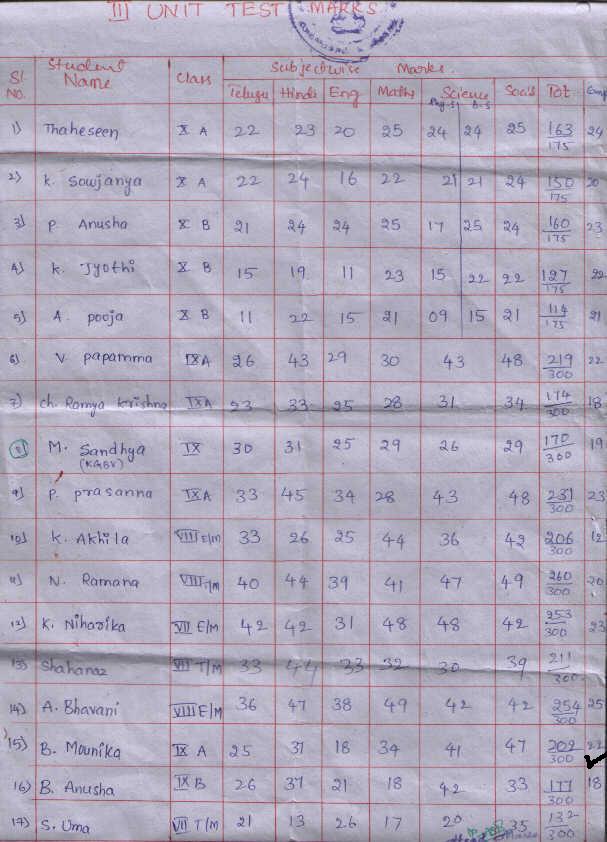 III UNIT TEST MARKS
Sl. No. Student Name Class Subjectwise Marks.
Telugu Hindi Eng Maths Science Phy.S B.S Soc.S Tot Comp
1) Thaheseen X A 22 23 20 25 24 24 25 163/175 24
2) K. Sowjanya X A 22 24 16 22 21 21 24 150/175 20
3) P. Anusha X B 21 24 24 25 17 25 24 160/175 23
4) K. Jyothi X B 15 19 11 23 15 22 22 127/175 22
5) A. pooja X B 11 22 15 21 09 15 21 114/175 21
6) V. papamma IX A 26 43 29 30 43 48 219/300 22
7) Ch. Ramya Krishna IX A 23 33 25 28 31 34 174/300 18
8) M. Sandhya (KGBV) IX 30 31 25 29 26 29 170/300 19
9) P. prasanna IX A 33 45 34 28 43 48 231/300 23
10) K. Akhila VIII E/M 33 26 25 44 36 42 206/300 12
11) N. Ramana VIII T/M 40 44 39 41 47 49 260/300 20
12) K. Niharika VII E/M 42 42 31 48 48 42 253/300 23
13) Shahanaz VII T/M 33 44 33 32 30 39 211/300
14) A. Bhavani VIII E/M 36 47 38 49 42 42 254/300 25
15) B. Mounika IX A 25 37 18 34 41 47 202/300 22
16) B. Anusha IX B 26 37 21 18 42 33 177/300 18
17) S. Uma VII T/M 21 13 26 17 20 35 132/300